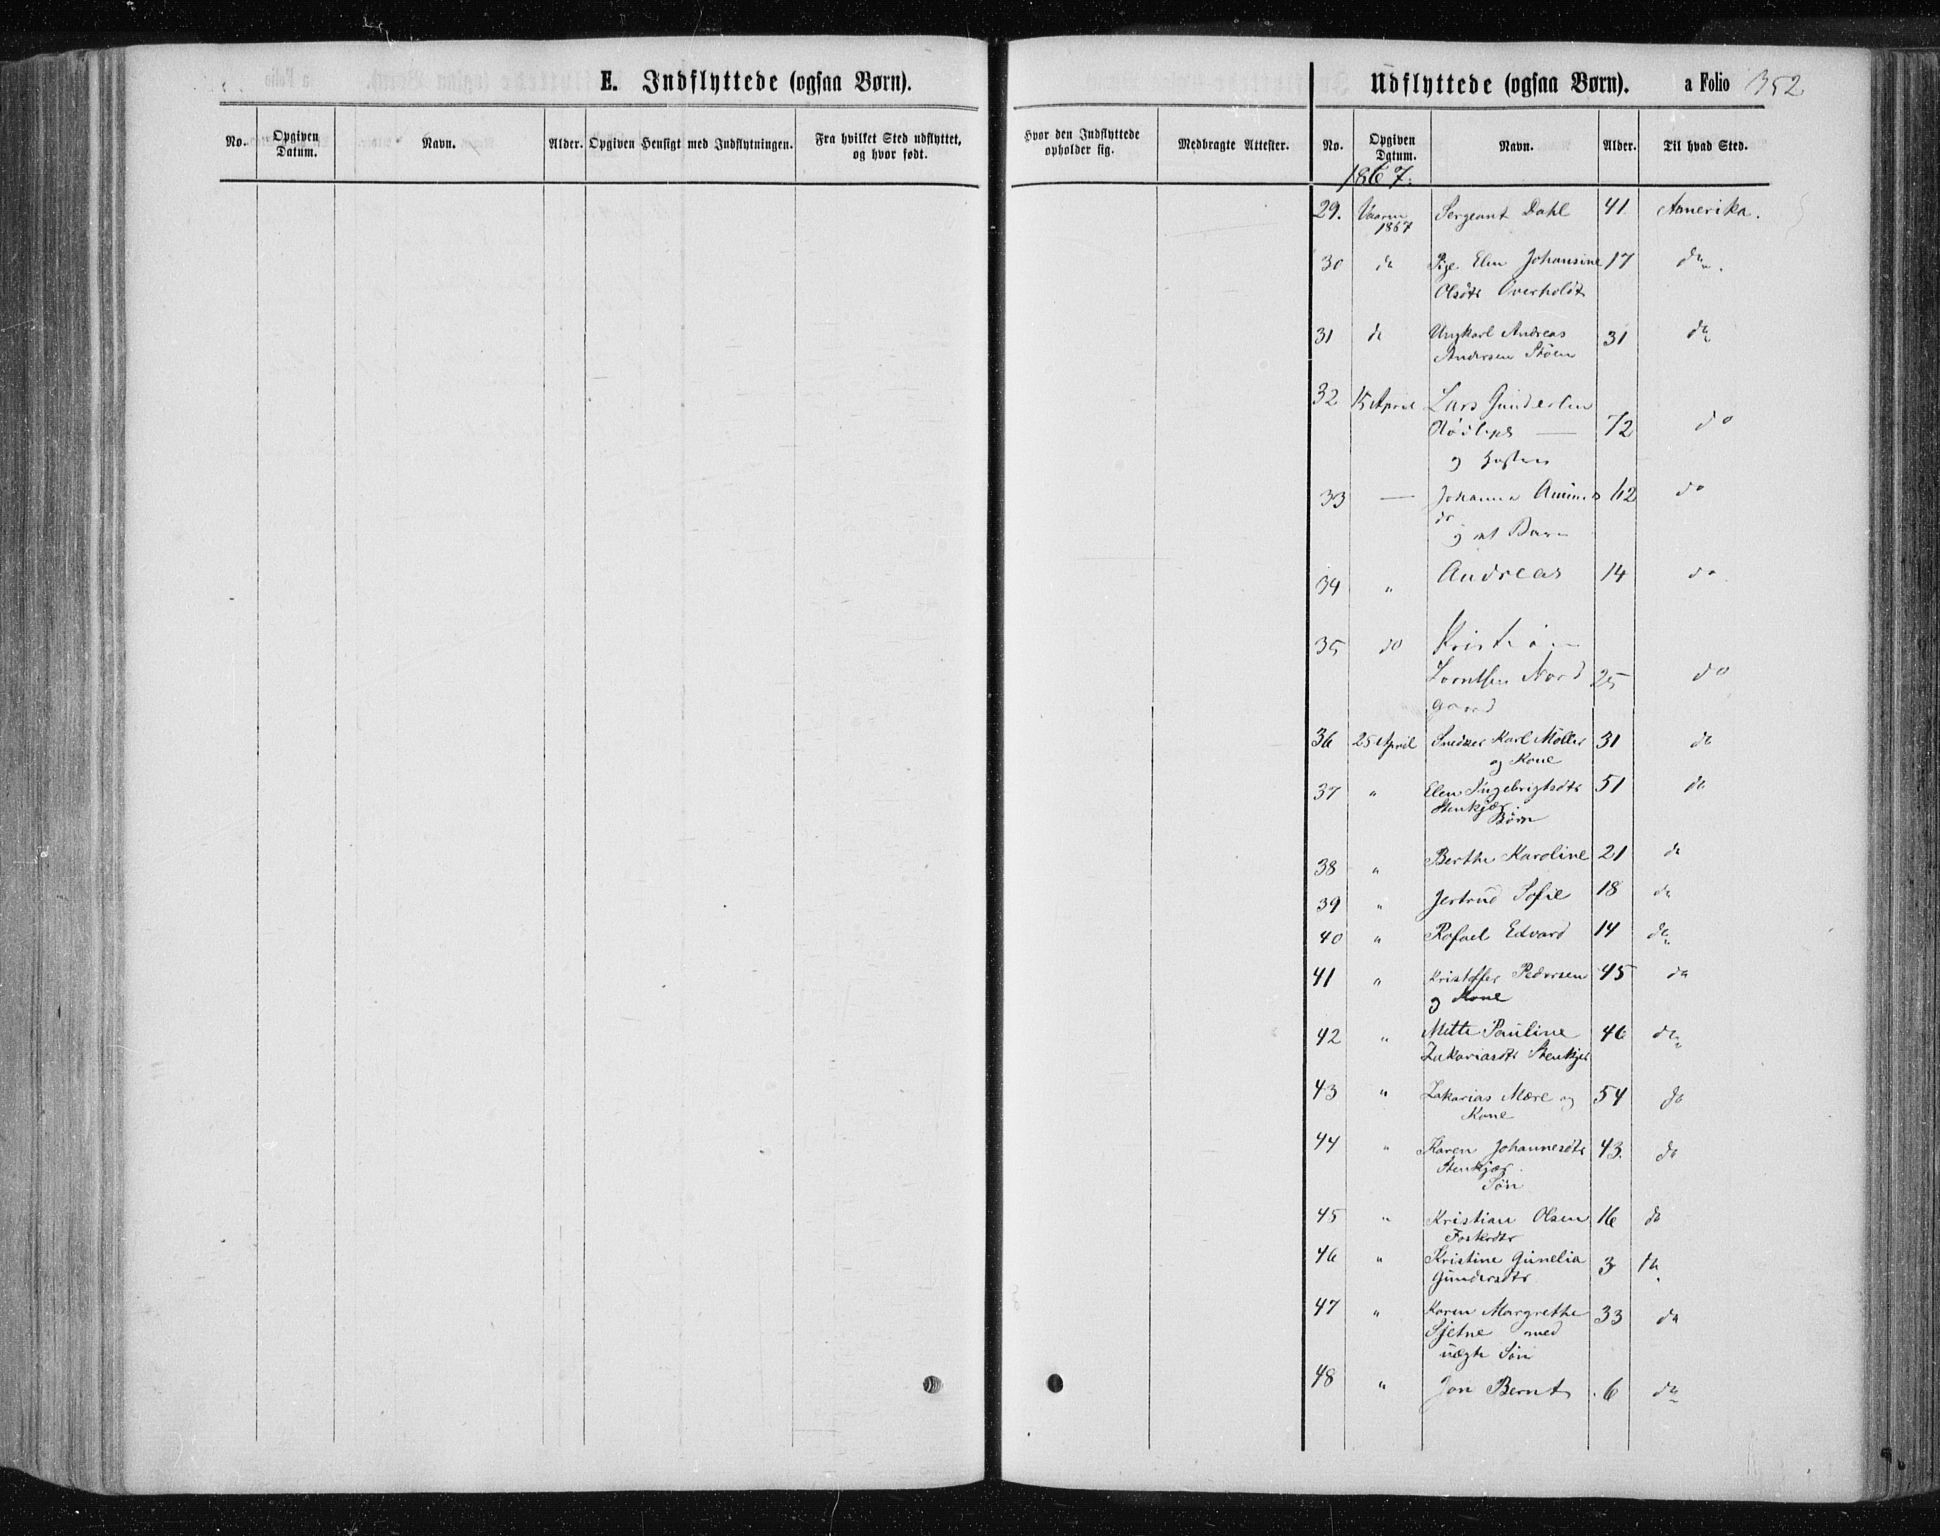 E. Indflyttede (ogsaa Børn).
No.
Opgiven Datum.
Navn.
Alder.
Opgiven Hensigt med Indflytningen.
Fra hvilket Sted udflyttet, og hvor født.
Hvor den Indflyttede opholder sig.
Medbragte Attester.
Udflyttede (ogsaa Børn). a Folio 352
No.
Opgiven Datum.
Navn.
Alder.
Til hvad Sted.
1867.
29. Vaaren Sergeant Dahl 41 Amerika.
1867
30 do Pige Elen Johansine 17 do
Olsdtr Overholdt
31 do Ungkarl Andreas 31 do
Andersen Støen
32 15 April Lars Gundersen
72 do
og
33 — Johanna 62 do
do
og et Barn
34 " Andreas 14 do
35 do Kristian
Lorntsen Nord 25 do
gaard
36 25 April Snedker Karl Møller 31 do
og Kone
37 " Elen Ingebrigtsdtr 51 do
Stenkjær
Børn
38 " Berthe Karoline 21 do
39 " Jertrud Sofie 18 do
40 " Rafael Edvard 14 do
41 " Kristoffer Pedersen 45 do
og Kone
42 " Mette Pauline 46 do
Zakariasdtr Stenkjær
43 " Zakarias Mære og 54 do
Kone
44 " Karen Johannesdtr 43 do
Stenkjær
Søn
45 " Kristian Olsen 16 do
46 " Kristine Gunelia 3 do
Gundersdtr
47 " Karen Margrethe 33 do
Sjetne med
uægte Søn
48 " Jon Bernt 6 do